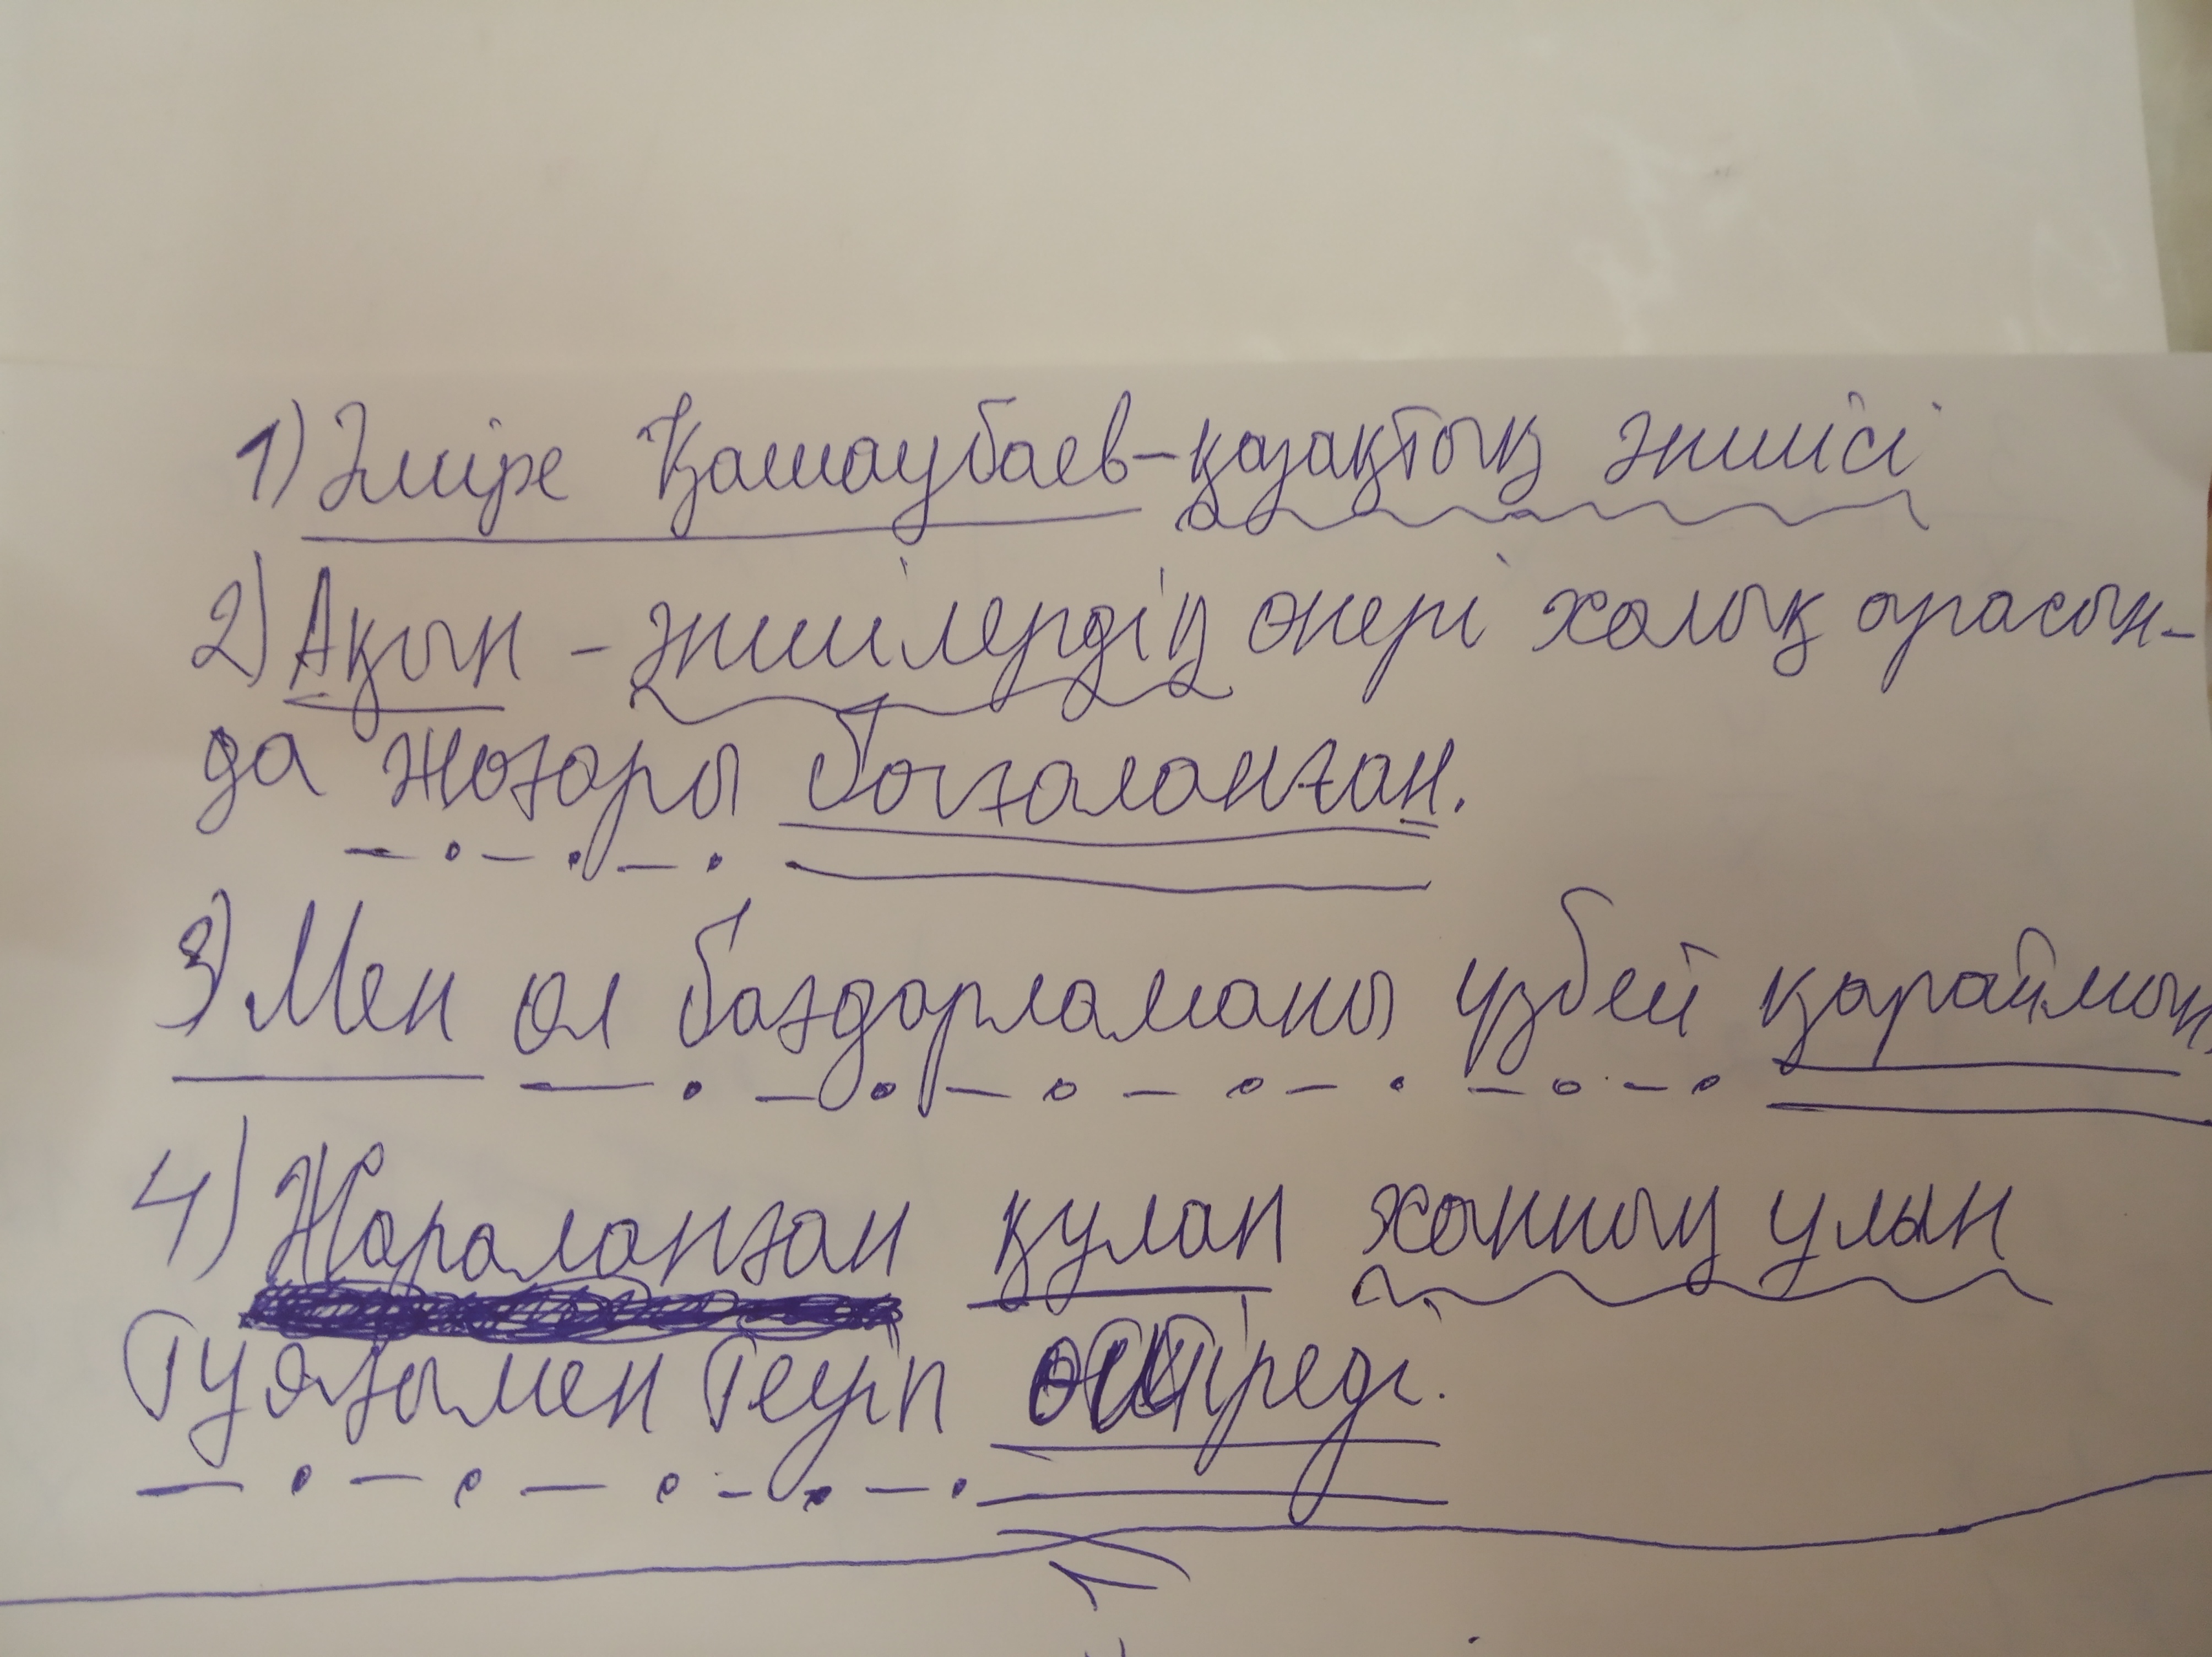 1) Әміре Қашаубаев-қазақтың әншісі
2) Ақын - әншілердің өнері халық арасын-
да жоғары бағаланған.
3) Мен ол бағдарламаны үзбей қараймын.
4) Жараланған құлан ханның ұлын
тұяғымен теуіп өлтіреді.